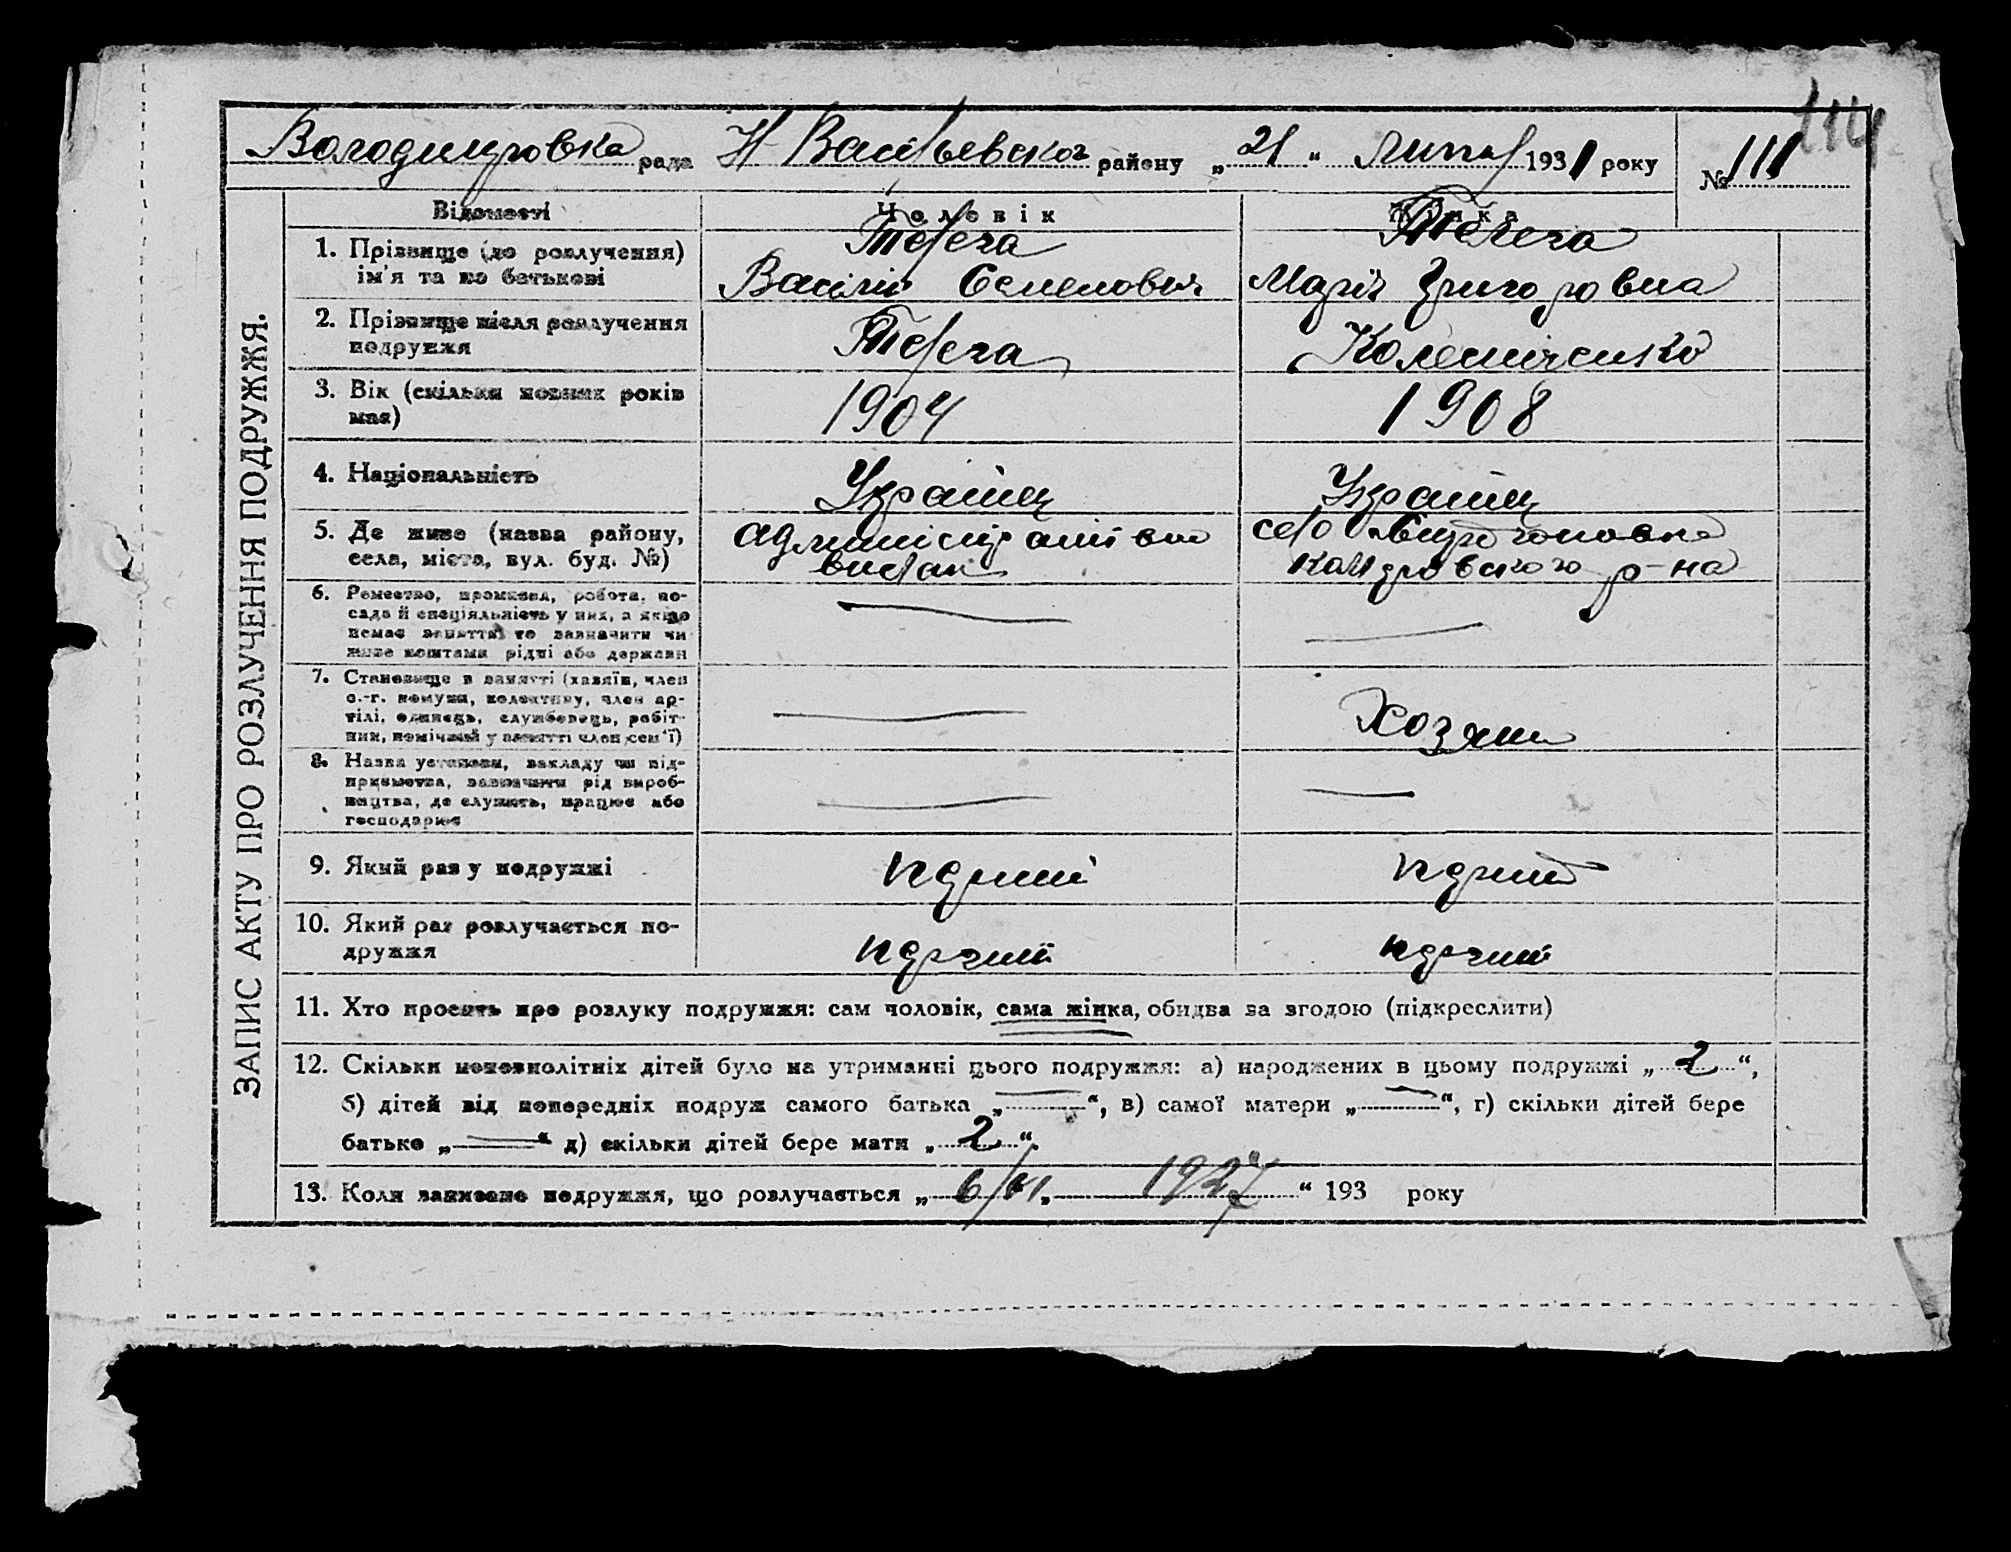 114
Володимировка рада Н Васильевског району „ 21 “ липня 1931 року № 111
ЗАПИС АКТУ ПРО РОЗЛУЧЕННЯ ПОДРУЖЖЯ.
Відомості Чоловік Жінка
1. Прізвище (до розлучення) Телега Телега
ім'я та по батькові Василій Семенович Марія Григоровна
2. Прізвище після розлучення
подружжя Телега
3. Вік (скільки повних років
має) 1904 1908
4. Національність Українец Українец
5. Де живе (назва району, село
села, міста, вул. буд. №) р-на
6. Ремество, промисел, робота, по-
сада й спеціяльність у них, а якщо
немає заняття, то зазначити чи
живе коштами рідні або держави
7. Становище в занятті (хазяїн, член
с.-г. комуни, колективу, член ар-
тілі, одинець, службовець, робіт-
ник, помічний у занятті член сем'ї) Хозяин
8. Назва установи, закладу чи під-
приємства, зазначити рід вироб-
ництва, де служить, працює або
господарює
9. Який раз у подружжі
10. Який раз розлучається по-
дружжя
11. Хто просить про розлуку подружжя: сам чоловік, сама жінка, обидва за згодою (підкреслити)
12. Скільки неповнолітніх дітей було на утриманні цього подружжя: а) народжених в цьому подружжі „ 2 “,
б) дітей від попередніх подруж самого батька „ — “, в) самої матери „ — “, г) скільки дітей бере
батько „ — “ д) скільки дітей бере мати „ 2 “.
13. Коли записано подружжя, що розлучається „ 1927 “ 193 року